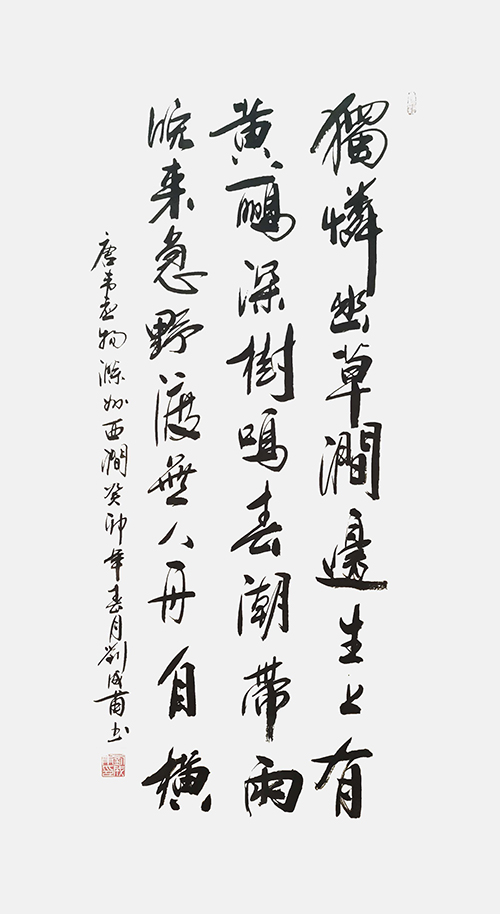 獨憐幽草澗邊生上有
黄鸝深樹鳴春潮帶雨
晚来急野渡無人舟自橫
唐韦应物滁州西澗癸卯年春月劉成书